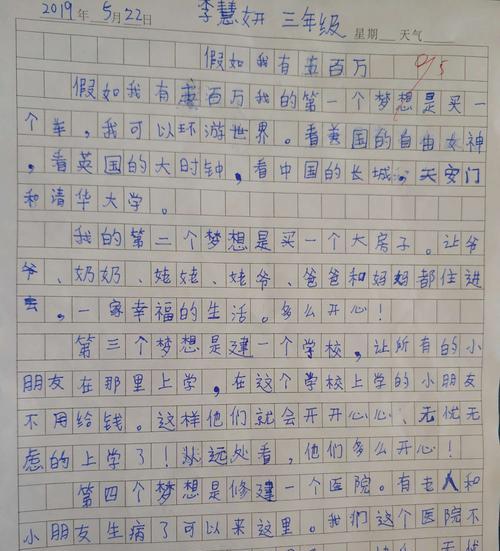 2019年5月22日 李慧妍 三年级 星期 天气
假如我有五百万 95
假如我有五百万我的第一个梦想是买一
个车，我可以环游世界。看美国的自由女神
，看英国的大时钟，看中国的长城，天安门
和清华大学。
我的第二个梦想是买一个大房子。让爷
爷、奶奶、姥姥、姥爷、爸爸和妈妈都住进
去，一家幸福的生活。多么开心！
第三个梦想是建一个学校，让所有的小
朋友在那里上学，在这个学校上学的小朋友
不用给钱。这样他们就会开开心心、无忧无
虑的上学了！从远处看，他们多么开心！
第四个梦想是修建一个医院。有老人和
小朋友生病了可以来这里。我们这个医院不